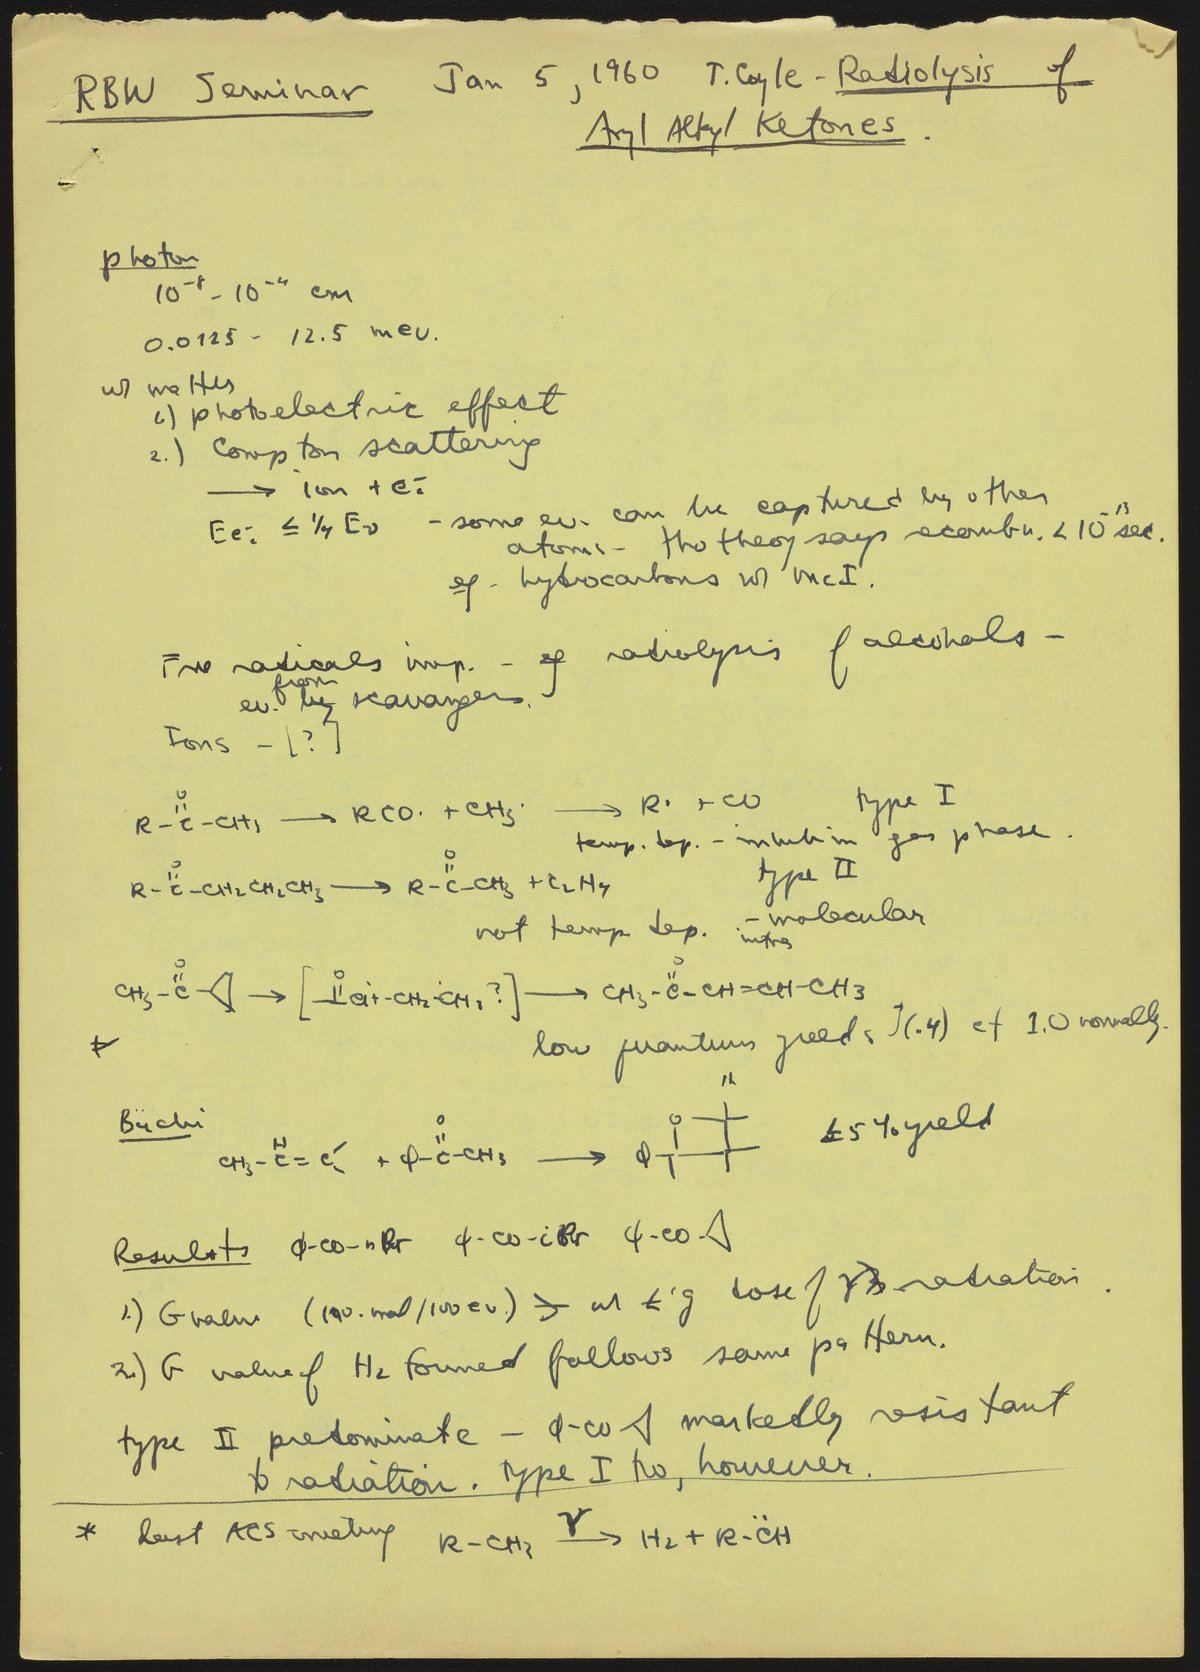 RBW Seminar Jan 5, 1960 T. Coyle - Radiolysis of
Aryl Alkyl Ketones.
photon
10⁻⁸ - 10⁻⁴ cm
0.0125 - 12.5 mev.
w/ matter
1.) photoelectric effect
2.) Compton scattering
⟶ ion + e⁻
≤ 1/4 - some ev. can be captured by other
atoms - tho theory says recombn. < 10⁻¹³ sec.
eg - hydrocarbons w/ MeI.
Free radicals imp. - eg radiolysis of alcohols -
ev. from by scavangers.
Ions - [?]
R-C(=O)-CH3 ⟶ RCO· + CH3· ⟶ R· + CO type I
temp. dep. - in gas phase.
R-C(=O)-CH2CH2CH3 ⟶ R-C(=O)-CH3 + C2H4 type II
not temp dep. - intra molecular
CH3-C(=O)-◁ ⟶ [ -CH2-CH2 ?] ⟶ CH3-C(=O)-CH=CH-CH3
* low quantum yields (.4) cf 1.0 normally.
Büchi
CH3-CH=C + φ-C(=O)-CH3 ⟶ O H φ ≤5% yield
Results φ-CO-nPr φ-CO-iPr φ-CO-◁
1.) G value (mol/100 ev.) w/ dose of γ radiation.
2.) G value of H2 formed follows same pattern.
type II predominate - φ-CO-◁ markedly resistant
to radiation. type I tho, however.
* Last ACS meeting R-CH3 —γ⟶ H2 + R-C̈H